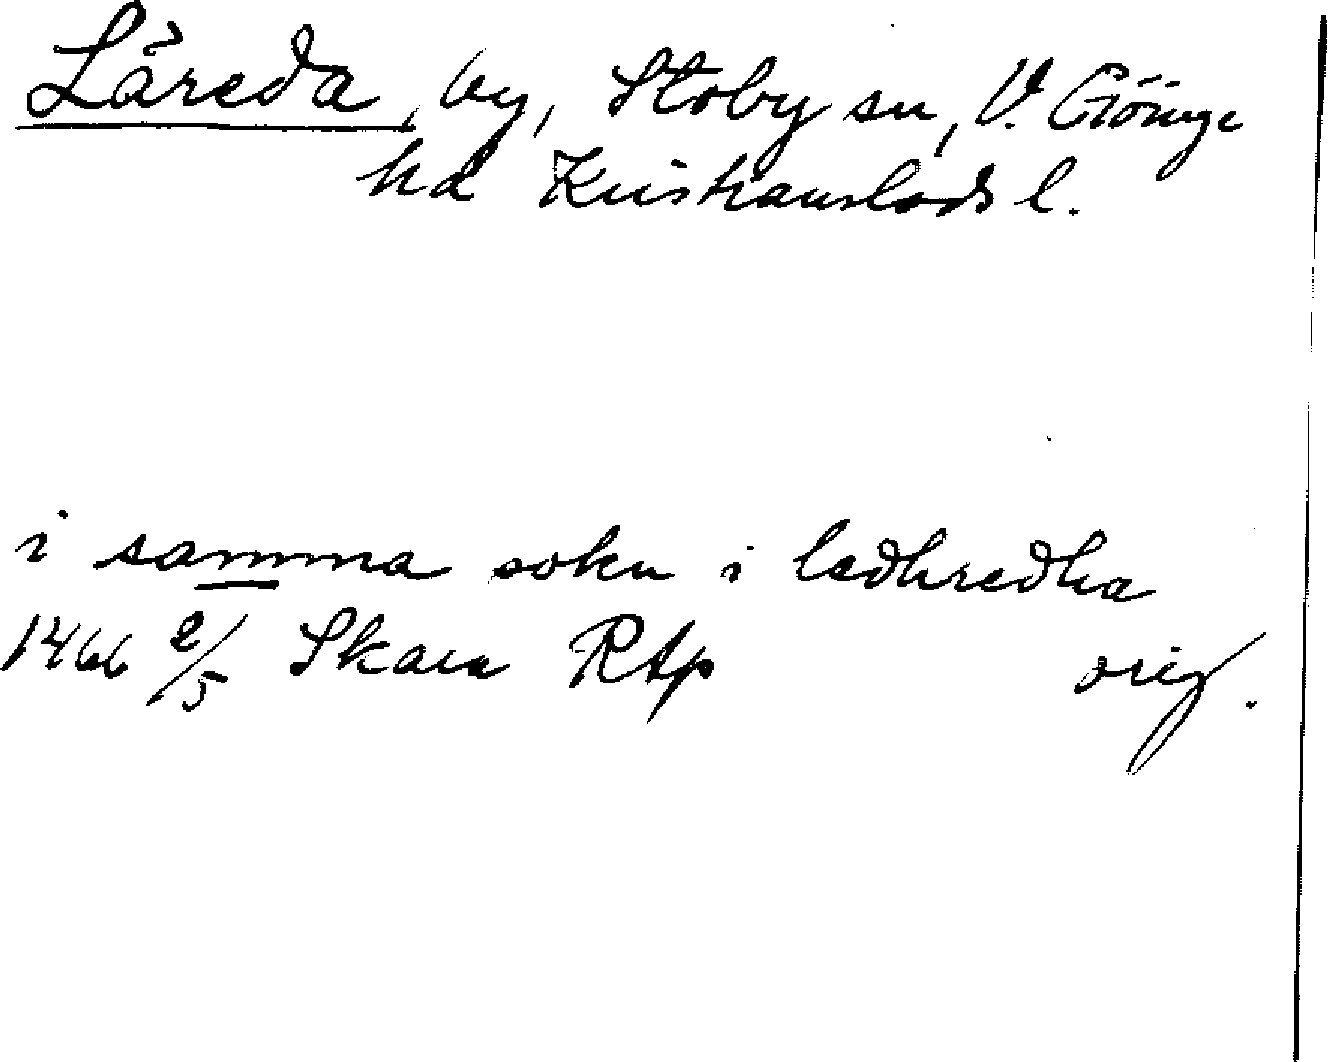 Låreda, by, Stoby sn, V. Göinge
hd Kristianstads l.
i samma sokn i ledhredha
1466 2/5 Skara RAp orig.